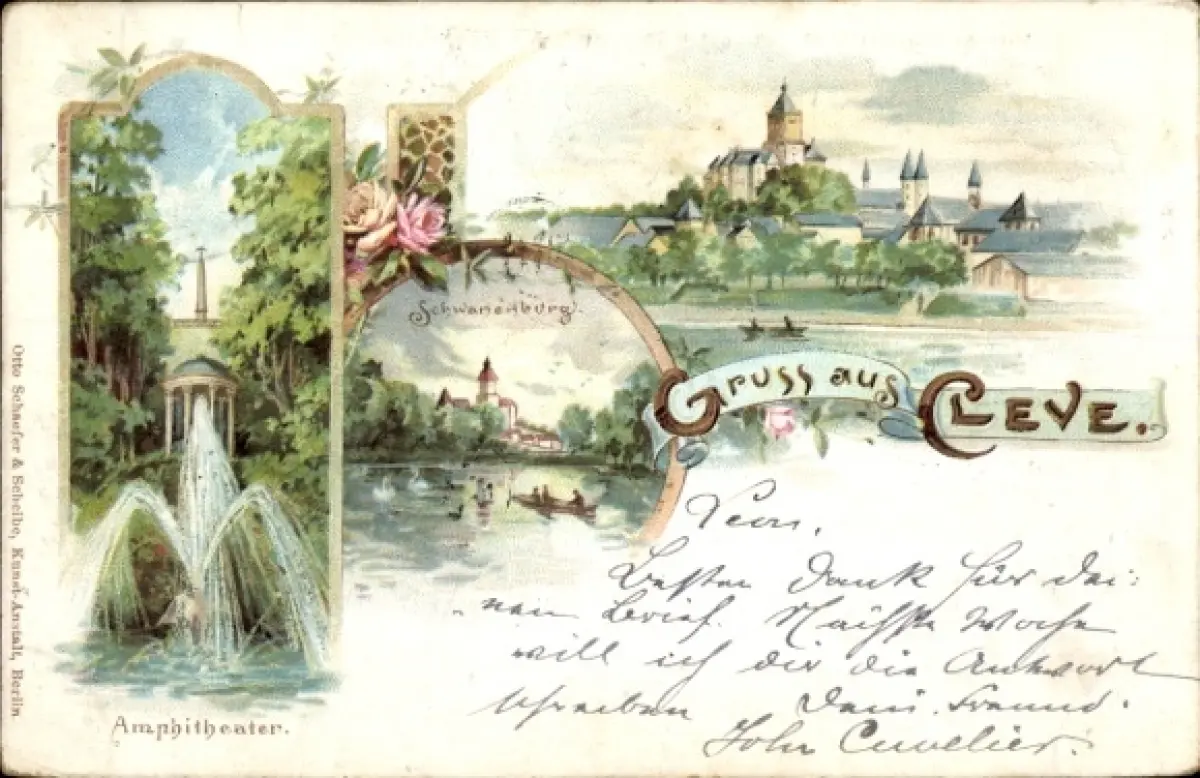 Schwanenburg.
Gruss aus CLEVE.
Amphitheater.
Otto Schaefer & Scheibe, Kunst-Anstalt, Berlin
Besten Dank für dei:
nen Brief. Nächste Woche
will ich dir die Antwort
schreiben Dein Freund.
John Cuvelier.